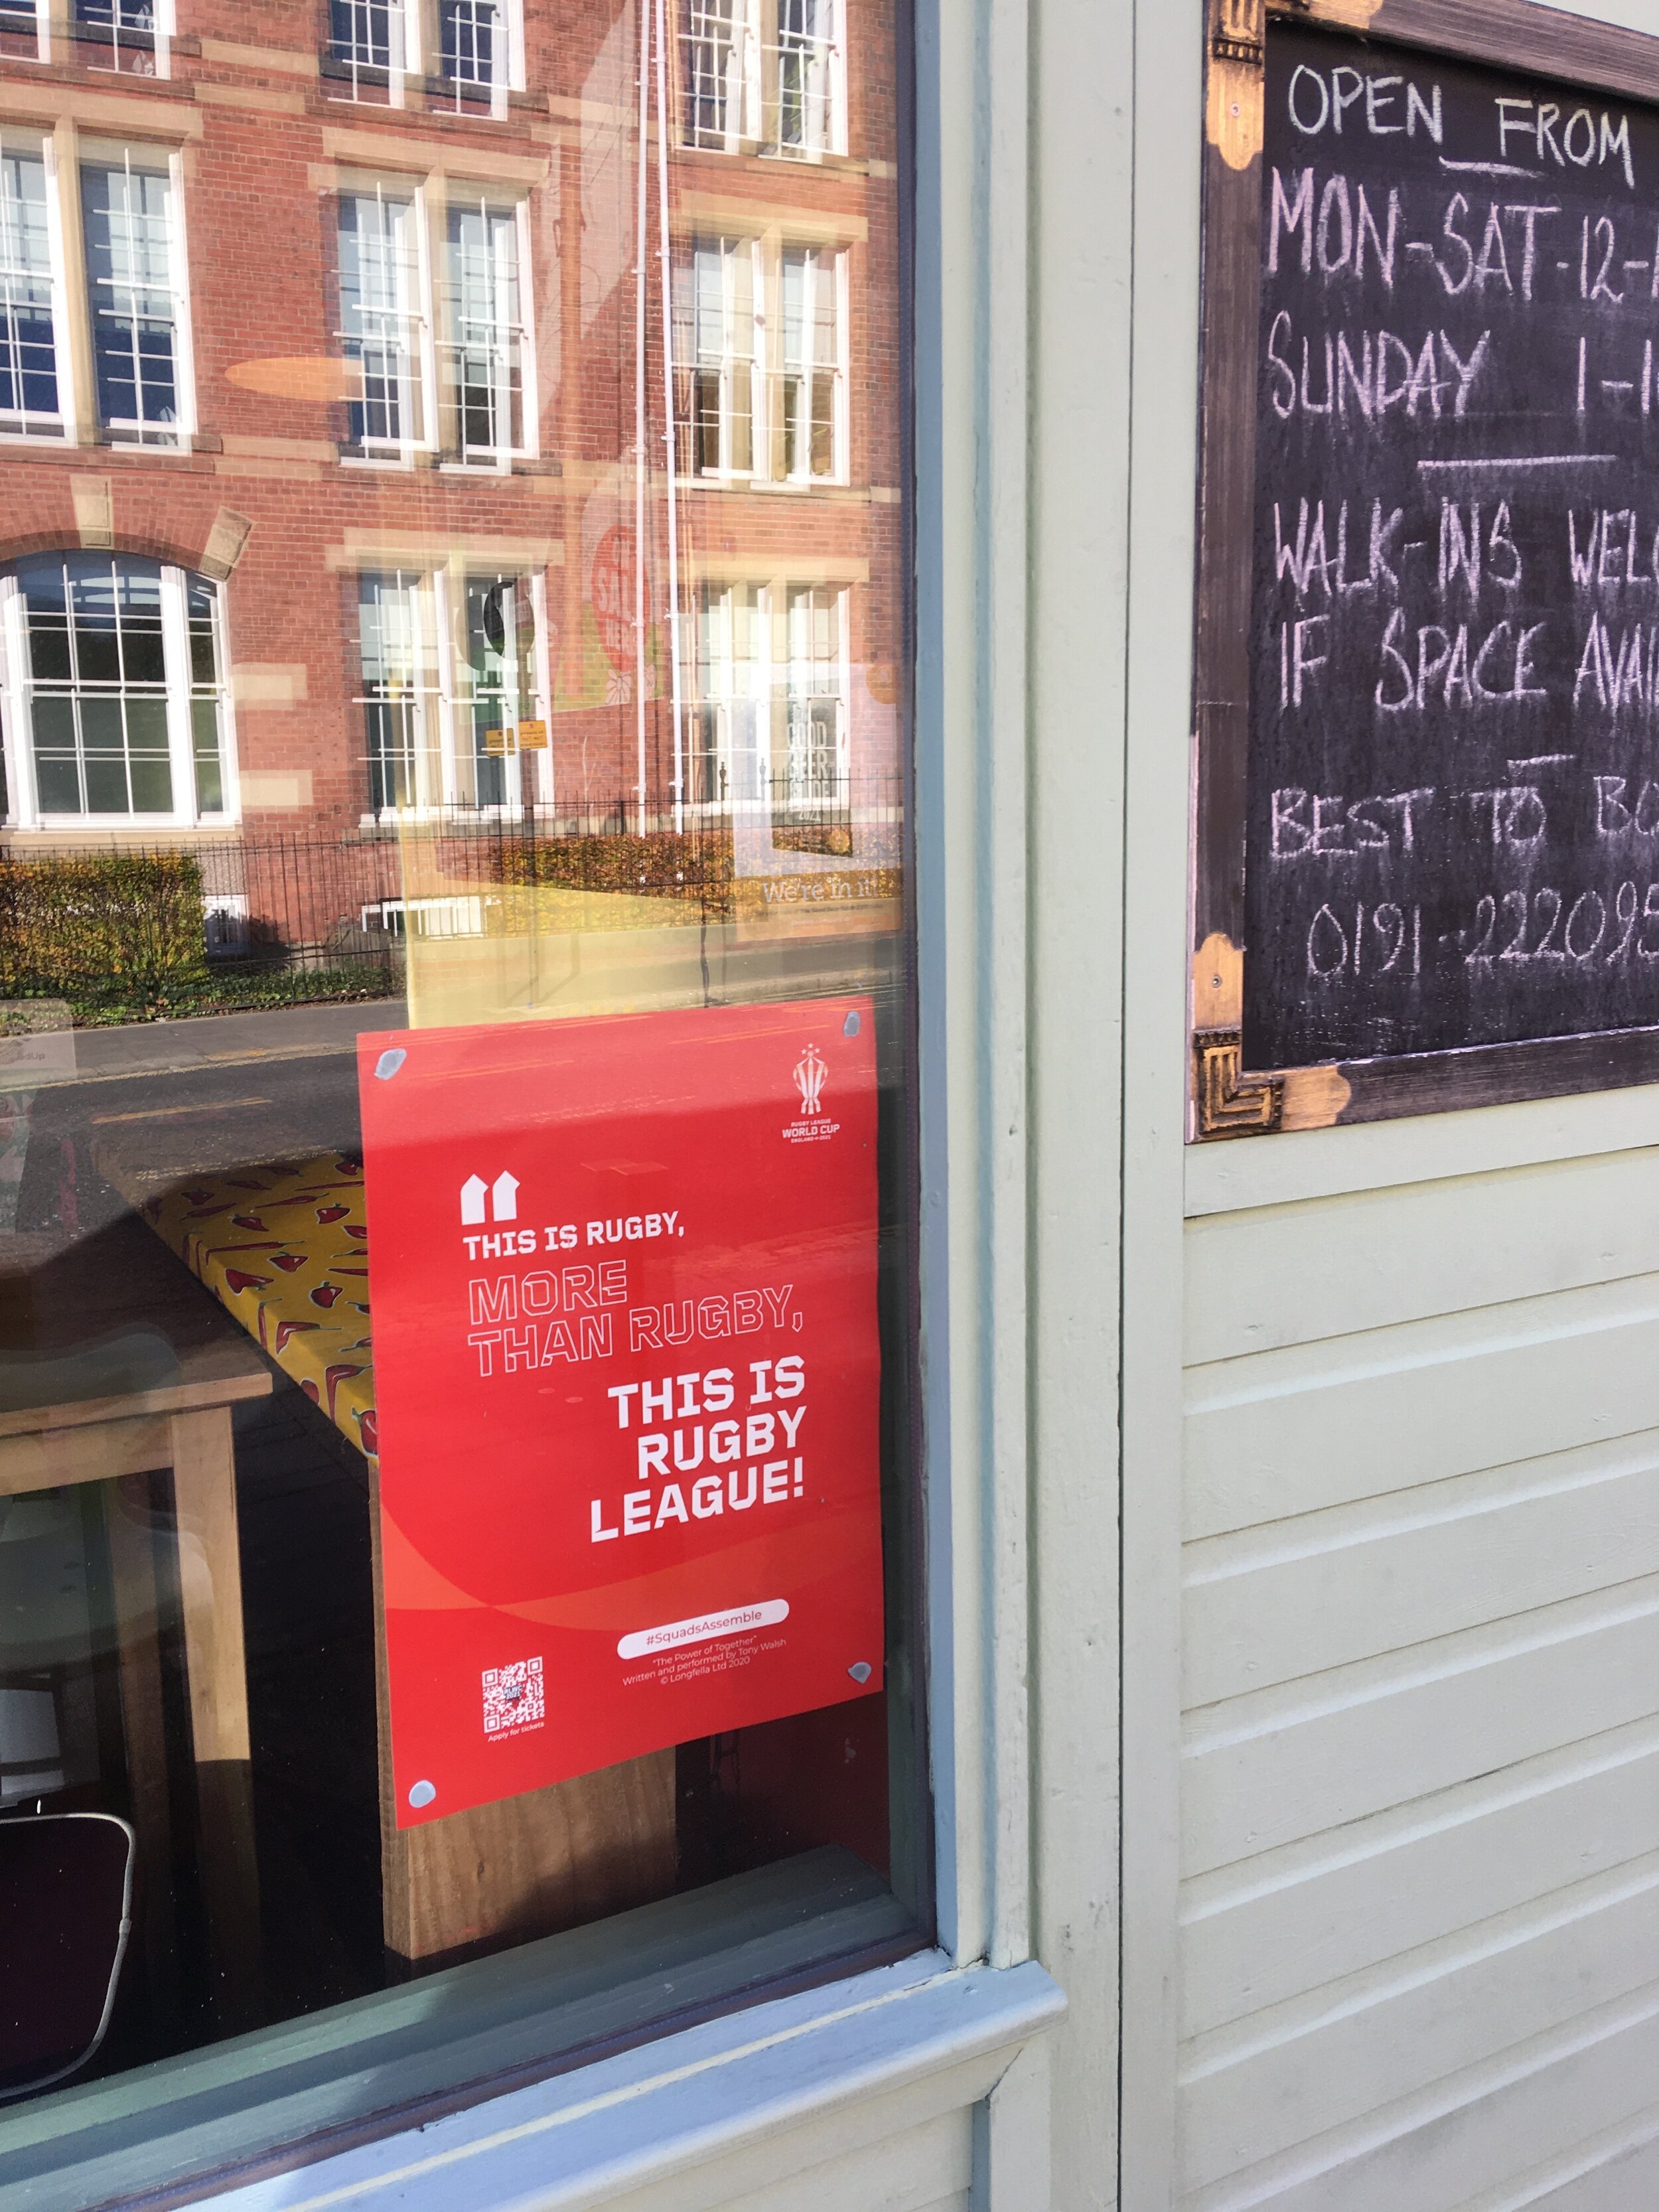 OPEN FROM
MON-SAT-12-
SUNDAY 1-1
WALK-INS WELC
IF SPACE AVAI
BEST TO BO
0191-222095
GOOD
BEER
GUIDE
We're in it
RUGBY LEAGUE
WORLD CUP
ENGLAND 2021
THIS IS RUGBY,
MORE
THAN RUGBY,
THIS IS
RUGBY
LEAGUE!
#SquadsAssemble
"The Power of Together"
Written and performed by Tony Walsh
© Longfella Ltd 2020
Apply for tickets